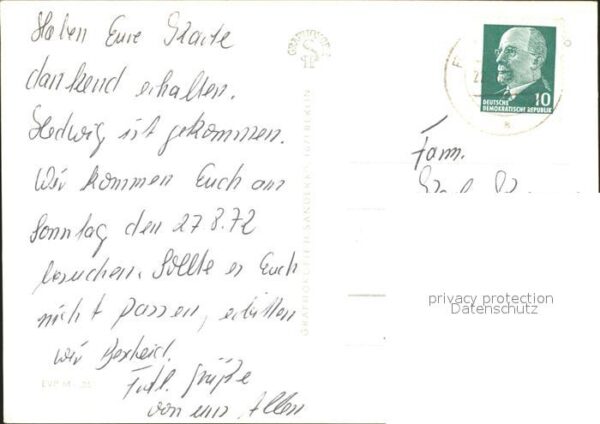 Haben Eure Karte
dankend erhalten.
Hedwig ist gekommen.
Wir kommen Euch am
Sonntag den 27.8.72
besuchen. Sollte es Euch
nicht passen, erbitten
wir Bescheid.
Grüße
von uns Allen
EVP M
GRAPHOKOPIE H. SANDER KG BERLIN
DEUTSCHE
DEMOKRATISCHE REPUBLIK
10
Fam.
privacy protection
Datenschutz